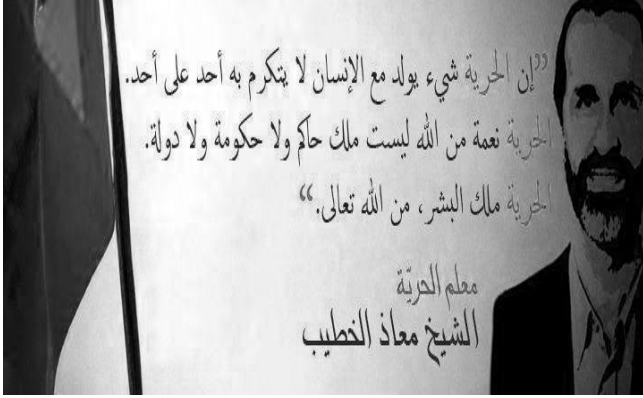 ”إن الحرية شيء يولد مع الإنسان لا يتكرم به أحد على أحد.
الحرية نعمة من الله ليست ملك حاكم ولا حكومة ولا دولة.
الحرية ملك البشر، من الله تعالى.“
معلم الحريّة
الشيخ معاذ الخطيب